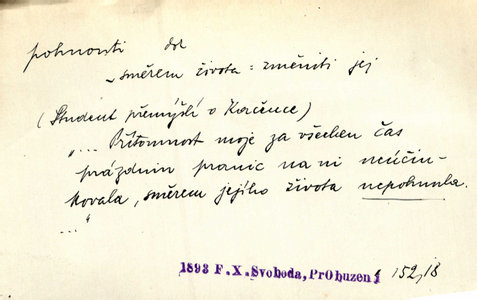 pohnouti dok
~ směrem života = změniti jej
(Student přemýšlí o Korčence)
"... Přítomnost moje za všechen čas
prázdnin pranic na ni neúčin-
kovala, směrem jejího života nepohnula.
..."
1893 F.X.Svoboda, Probuzení 152,18